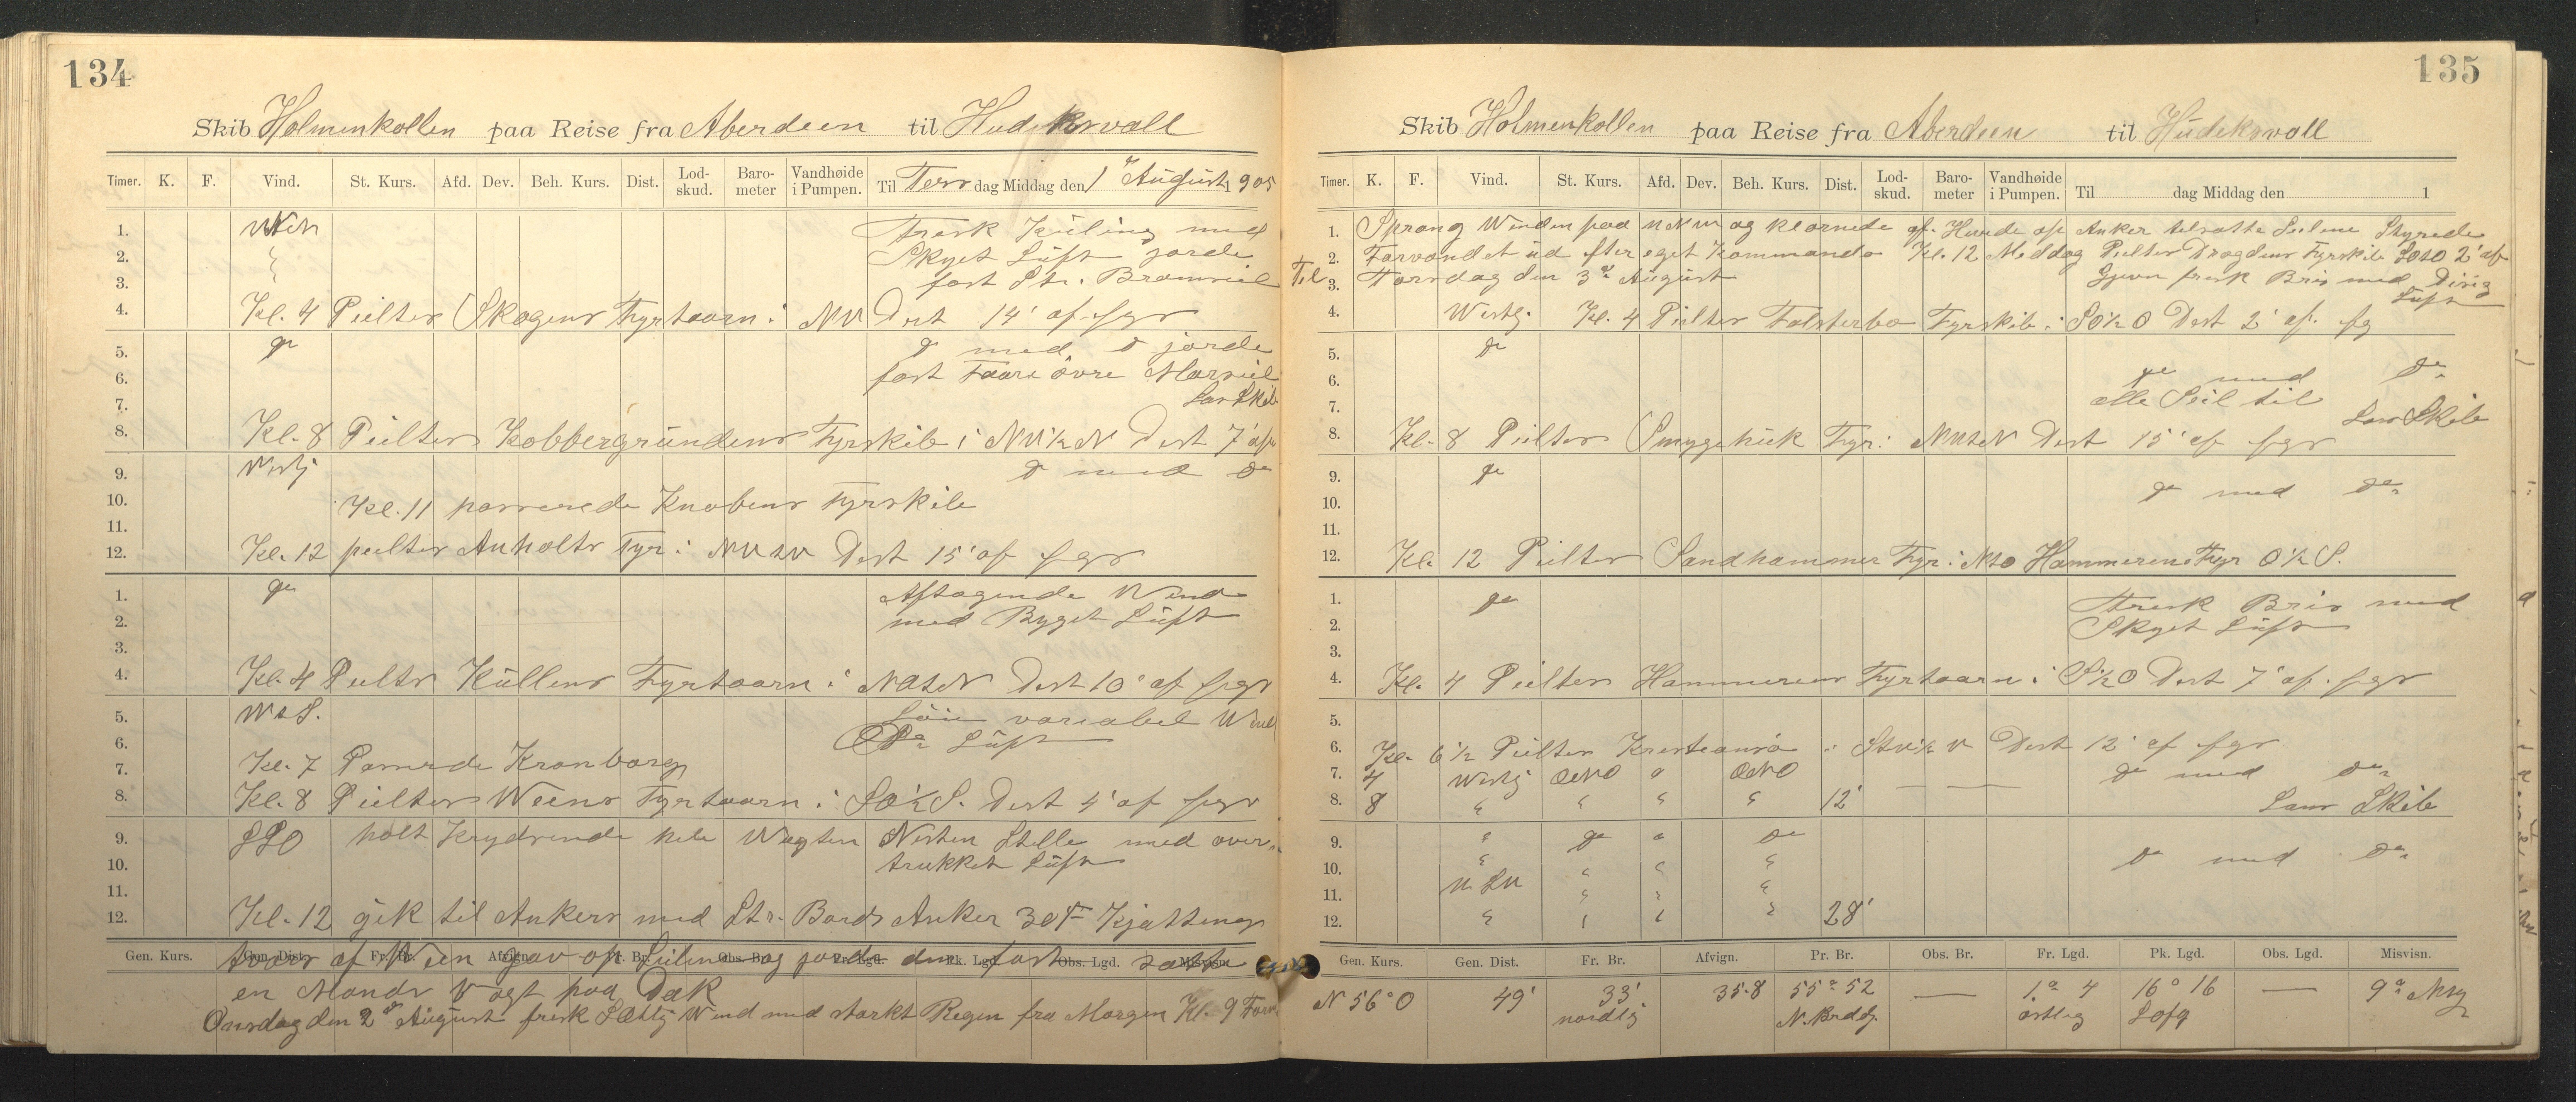 134
Skib Holmenkollen paa Reise fra Aberdeen til Hudiksvall
Timer. K. F. Vind. St. Kurs. Afd. Dev. Beh. Kurs. Dist. Lod-skud. Baro-meter Vandhøide i Pumpen. Til Tersdag Middag den 1ste August 1905
1. Fresk Kuling med
2. Skyet Luft jorde
3. fast Str. Bramseil
4. Kl. 4 Peilter Skagens Fyrtaarn i NW Dist 14' af fgr
5. do do med do jorde
6. fast Faare övre Marseil
7. Lns Skib
8. Kl. 8 Peilter Kobbergrundens Fyrskib i NW½N Dist 7' af
9. Vestlj do med do
10. Kl. 11 passerede Knobens Fyrskib
11.
12. Kl. 12 peilter Anholts Fyr i Dist 15' af fgr
1. do Aftagende Wind
2. med Byget Luft
3.
4. Kl. 4 Peilter Kullens Fyrtaarn i Dist 10' af fgr
5. WtS. Löie variabel Wind
6. do Luft
7. Kl. 7 Passerede Kronborg
8. Kl. 8 Peilter Weens Fyrtaarn i SO½S. Dist 4' af fgr
9. SSO holt Krydsende hele Wagten Nesten Stelle med over-
10. trukket Luft
11.
12. Kl. 12 gik til Ankers med Str. Bords Anker 30 F Kjætting
Gen. Kurs. Gen. Dist. Fr. Br. Afvign. Pr. Br. Obs. Br. Fr. Lgd. Pk. Lgd. Obs. Lgd. Misvisn.
tvers af Ween gav op Seilene og jorde dem fast satte
en Mands Vagt paa Dæk
Onsdag den 2den August frisk Wind med starkt Regen fra Morgen Kl. 9 Form
135
Skib Holmenkollen paa Reise fra Aberdeen til Hudeksvall
Timer. K. F. Vind. St. Kurs. Afd. Dev. Beh. Kurs. Dist. Lod-skud. Baro-meter Vandhøide i Pumpen. Til dag Middag den 1
1. Sprang Winden paa WNW og klarnede af. Hivede op Anker tilsatte Seilene Styrede
2. Farvandet ud efter eget Kommando Kl. 12 Meddag Peilter Drogdens Fyrskib 2' af
3. Til Torsdag den 3de August Jjevn fresk Bris med Disig
Luft
4. Westlj. Kl. 4 Peilter Falsterbo Fyrskib i SO½O Dist 2' af fg
5. do
6. do med do
7. alle Seil til
Lns Skib
8. Kl. 8 Peilter Smygehuk Fyr i Dist 15' af fgr
9. do
10. do med do
11.
12. Kl. 12 Peilter Sandhammer Fyr i NtO Hammerens Fyr O½S.
1. do Fresk Bris med
2. Skyet Luft
3.
4. Kl. 4 Peilter Hammerens Fyrtaarn i S½O Dist 7' af fgr
5.
6. Kl. 6½ Peilter Kresteansö i Dist 12' af fgr
7. 4 Westlj do med do
8. 8 12' Lens Skib
9. do do
10. do med do
11.
12. 28'
Gen. Kurs. Gen. Dist. Fr. Br. Afvign. Pr. Br. Obs. Br. Fr. Lgd. Pk. Lgd. Obs. Lgd. Misvisn.
N 56° O 49' 33' 35.8 55° 52 — 1° 4 16° 16 — 9°
nordlig N. Brdg. östlig